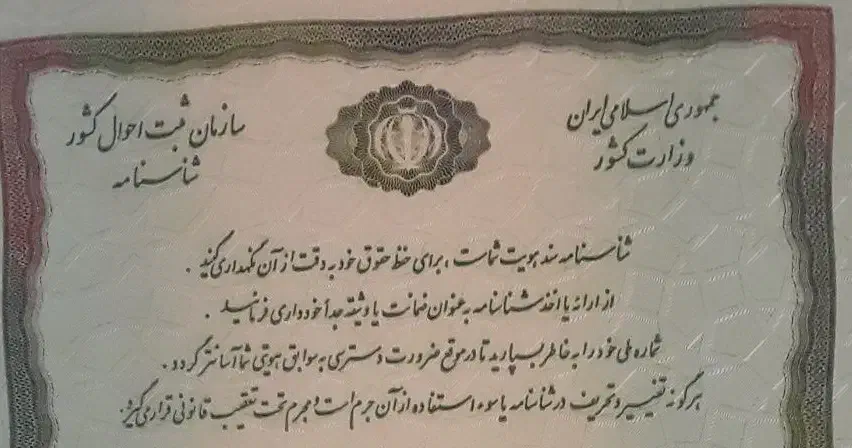 جمهوری اسلامی ایران
وزارت کشور
سازمان ثبت احوال کشور
شناسنامه
شناسنامه سند هویت شماست ، برای حفظ حقوق خود به دقت از آن نگهداری کنید .
از ارائه یا اخذ شناسنامه به عنوان ضمانت یا وثیقه جداً خودداری فرمائید .
شماره ملی خود را به خاطر بسپارید تا در موقع ضرورت دسترسی به سوابق هویتی شما آسانتر گردد .
هرگونه تغییر و تحریف در شناسنامه یا سوء استفاده از آن جرم است و مجرم تحت تعقیب قانونی قرار می گیرد .